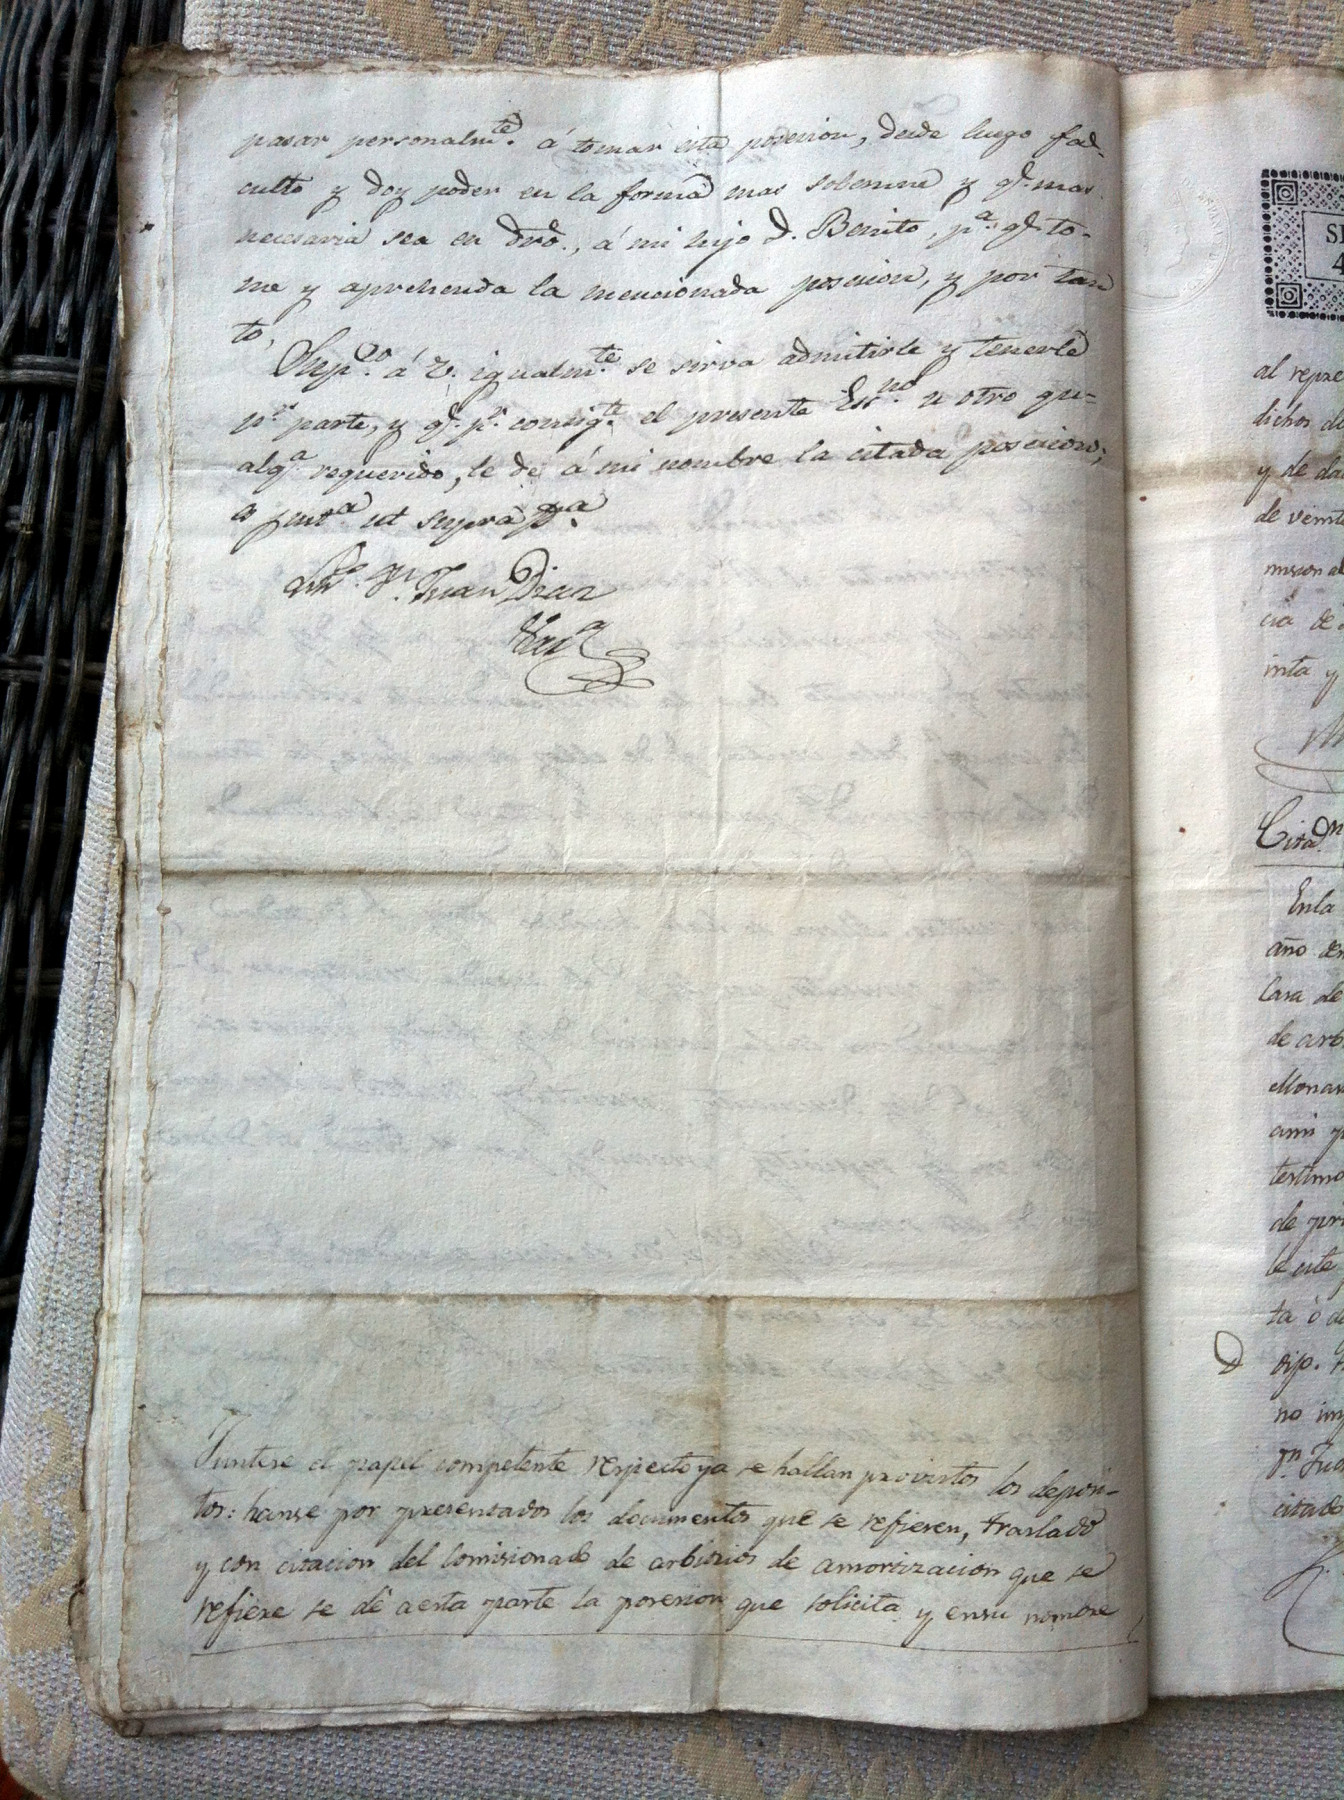 pasar personalmte. á tomar esta posesion, desde luego fa-
culto y doy poder en la forma mas solemne y q. mas
necesaria sea en dro., á mi hijo D. Benito, pa. q. to-
me y aprehenda la mencionada posesion, y por tan
to,
Suppco. á V. igualmte. se sirva admitirle y tenerle
pr. parte, y q. pr. consigte. el presente Essno. u otro qu-
alqa. requerido, le dé á mi nombre la citada posesion;
ut supra
Juan Diaz
Juntese el papel competente respecto ya se hallan provistos los deposi-
tos: hanse por presentados los documentos que se refieren, traslado
y con citacion del Comisionado de arbitrios de amortizacion que se
refiere se dé a esta parte la posesion que solicita y en su nombre
al repre
dichos d
y de da
de veint
mision al
cia de
inta y
Citaon.
En la
año de
Casa de
de arb
Monar
ami p
testimo
de pri
le cite
ta ó d
dijo.
no im
Jua
citado